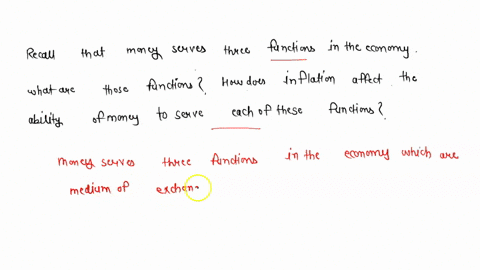 Recall that money serves three functions in the economy.
what are those functions? How does inflation affect the
ability of money to serve each of these functions?
money serves three functions in the economy which are
medium of exchan